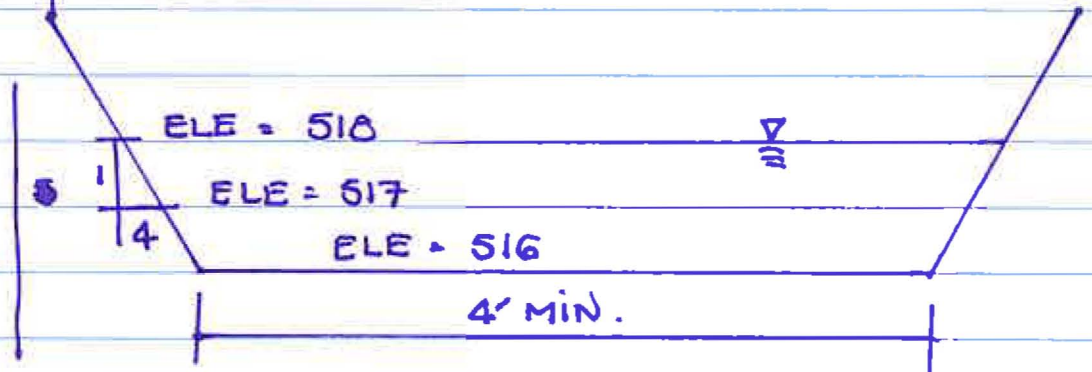 ELE = 518
1
ELE = 517
4
ELE = 516
4' MIN.